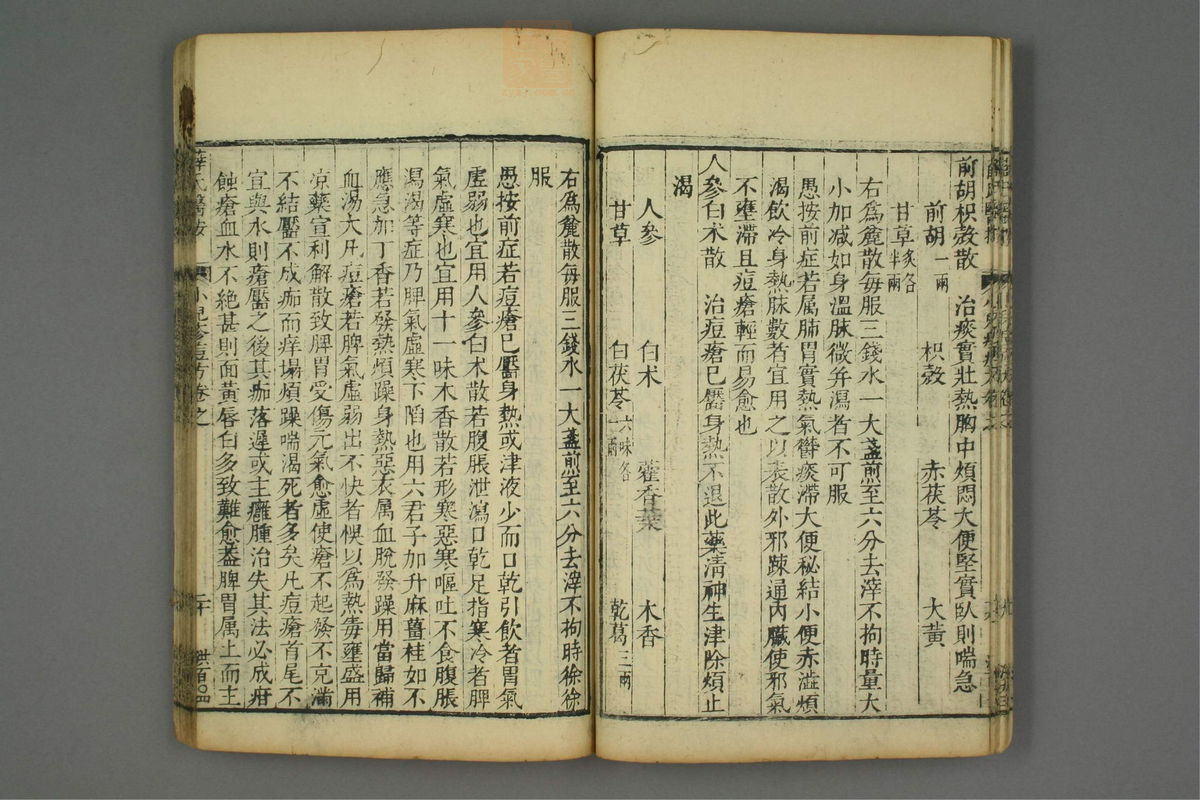 前胡枳殼散 治痰實壯熱胸中煩悶大便堅實臥則喘急
前胡一兩 枳殼 赤茯苓 大黃
甘草炙各半兩
右為麄散每服三錢水一大盞煎至六分去滓不拘時量大
小加減如身溫脉微并瀉者不可服
愚按前症若属肺胃實熱氣欝痰滯大便秘結小便赤澁煩
渴飲冷身熱脉數者宜用之以表散外邪踈通內臟使邪氣
不壅滯且痘瘡輕而易愈也
人參白术散 治痘瘡已靨身熱不退此藥淸神生津除煩止
渴
人參 白术 藿香葉 木香
甘草 白茯苓六味各一兩 乾葛二兩
右為麄散每服三錢水一大盞煎至六分去滓不拘時徐徐
服
愚按前症若痘瘡已靨身熱或津液少而口乾引飲者胃氣
虛弱也宜用人參白术散若腹脹泄瀉口乾足指寒冷者脾
氣虛寒也宜用十一味木香散若形寒惡寒嘔吐不食腹脹
瀉渴等症乃脾氣虛寒下陷也用六君子加升麻薑桂如不
應急加丁香若發熱煩躁身熱惡衣属血脫發躁用當歸補
血湯大凡痘瘡若脾氣虛弱出不快者悞以為熱毒壅盛用
凉藥宣利解散致脾胃受傷元氣愈虛使瘡不起發不克滿
不結靨不成痂而痒塌煩躁喘渴死者多矣凡痘瘡首尾不
宜與水則瘡靨之後其痂落遲或主癰腫治失其法必成疳
蝕瘡血水不絕甚則面黃唇白多致難愈葢脾胃属土而主
薛氏醫按 小兒 痘 方卷之 二十 洪百〇四